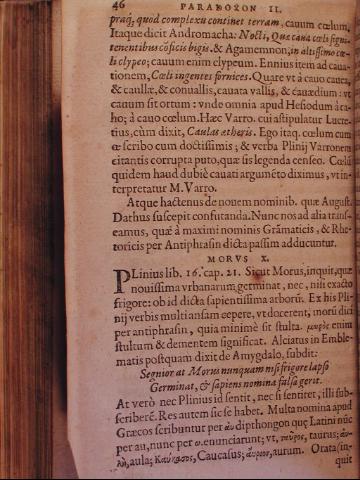 46 PARADOXON II.
praq, quod complexu continet terram, cauum cœlum.
Itaque dicit Andromacha: Nocti, Quæ caua cœli signi-
tenentibus cõficis bigis. & Agamemnon; in altissimo cœ-
li clypeo; cauum enim clypeum. Ennius item ad caua-
tionem, Cœli ingentes fornices. Quare vt à cauo cauea,
& caullæ, & conuallis, cauata vallis, & cauædium: vt
cauum sit ortum: vnde omnia apud Hesiodum à ca-
ho; à cauo cœlum. Hæc Varro. cui astipulatur Lucre-
tius, cùm dixit, Caulas ætheris. Ego itaq. cœlum cum
œ scribo cum doctissimis; & verba Plinij Varronem
citantis corrupta puto, quæ sis legenda censeo. Cœlũ
quidem haud dubiè cauati argumẽto diximus, vt in-
terpretatur M. Varro.
Atque hactenus de nouem nominib. quæ August.
Dathus suscepit confutanda. Nunc nos ad alia trans-
eamus, quæ à maximi nominis Grãmaticis, & Rhe-
toricis per Antiphrasin dicta passim adducuntur.
MORVS X.
PLinius lib. 16. cap. 21. Sicut Morus, inquit, quæ
nouissima vrbanarum germinat, nec, nisi exacto
frigore: ob id dicta sapientissima arborũ. Ex his Pli-
nij verbis multi ansam cepere, vt docerent, morũ dici
per antiphrasin, quia minimè sit stulta. μωρὸς enim
stultum & dementem significat. Alciatus in Emble-
matis postquam dixit de Amygdalo, subdit:
Segnior at Morus nunquam nisi frigore lapso
Germinat, & sapiens nomina falsa gerit.
At verò nec Plinius id sentit, nec si sentiret, illi sub-
scriberẽ. Res autem sic se habet. Multa nomina apud
Græcos scribuntur per αυ dipthongon quę Latini nũc
per au, nunc per o. enunciarunt; vt, ταῦρος, taurus; αὐ-
λὴ, aula; Καύκασος, Caucasus; αὖρον, aurum. Orata (in-
quit